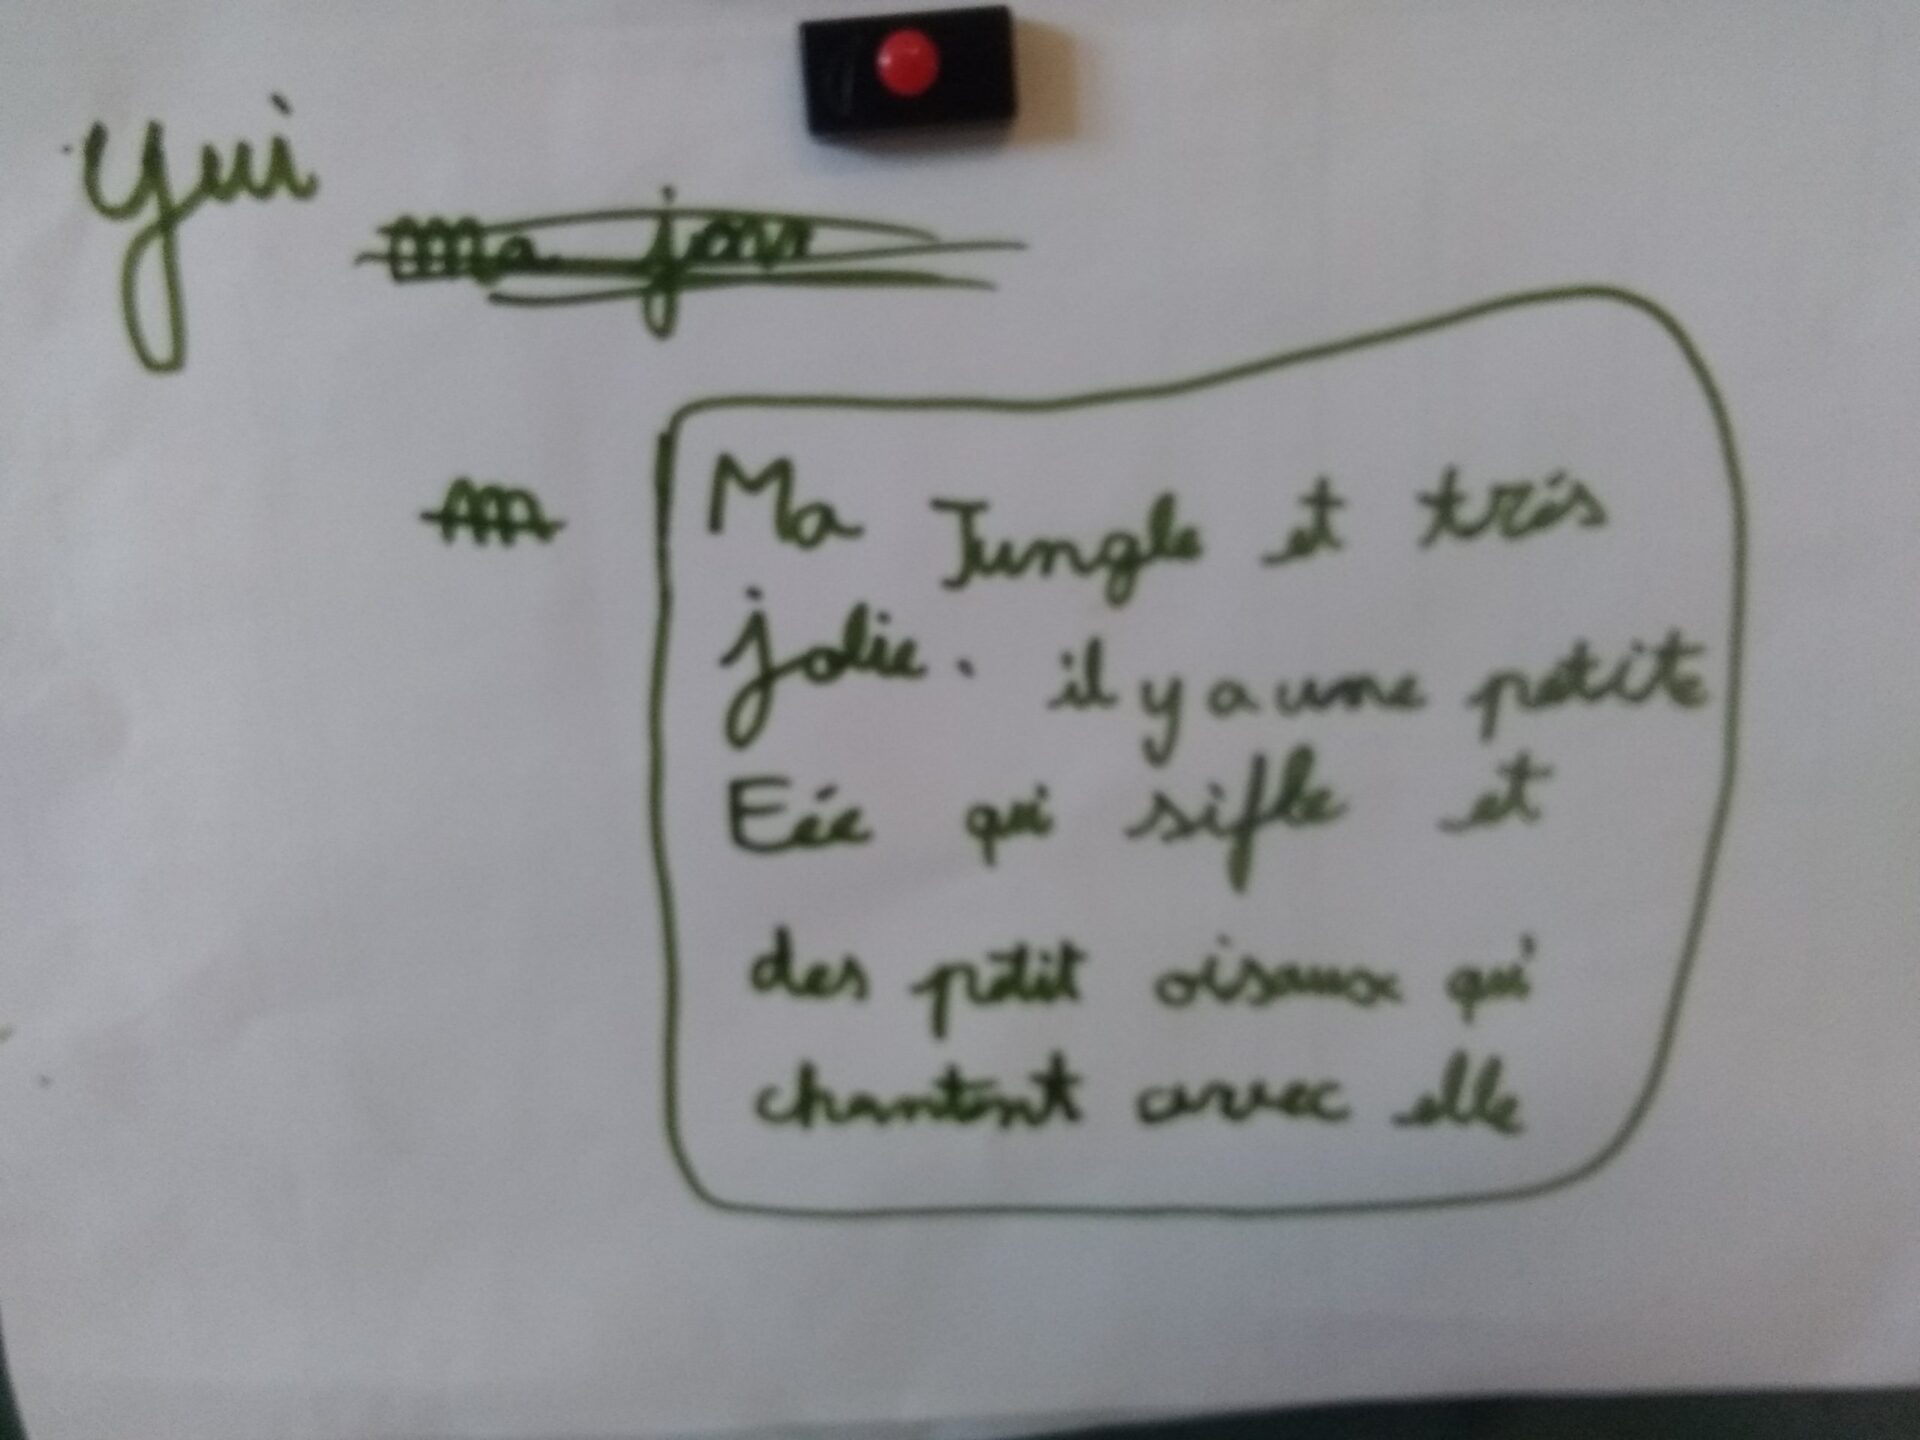 Yui
Ma Jungle et trés
jolie. il y a une petite
Eée qui sifle et
des petit oisaux qui
chantent avec elle